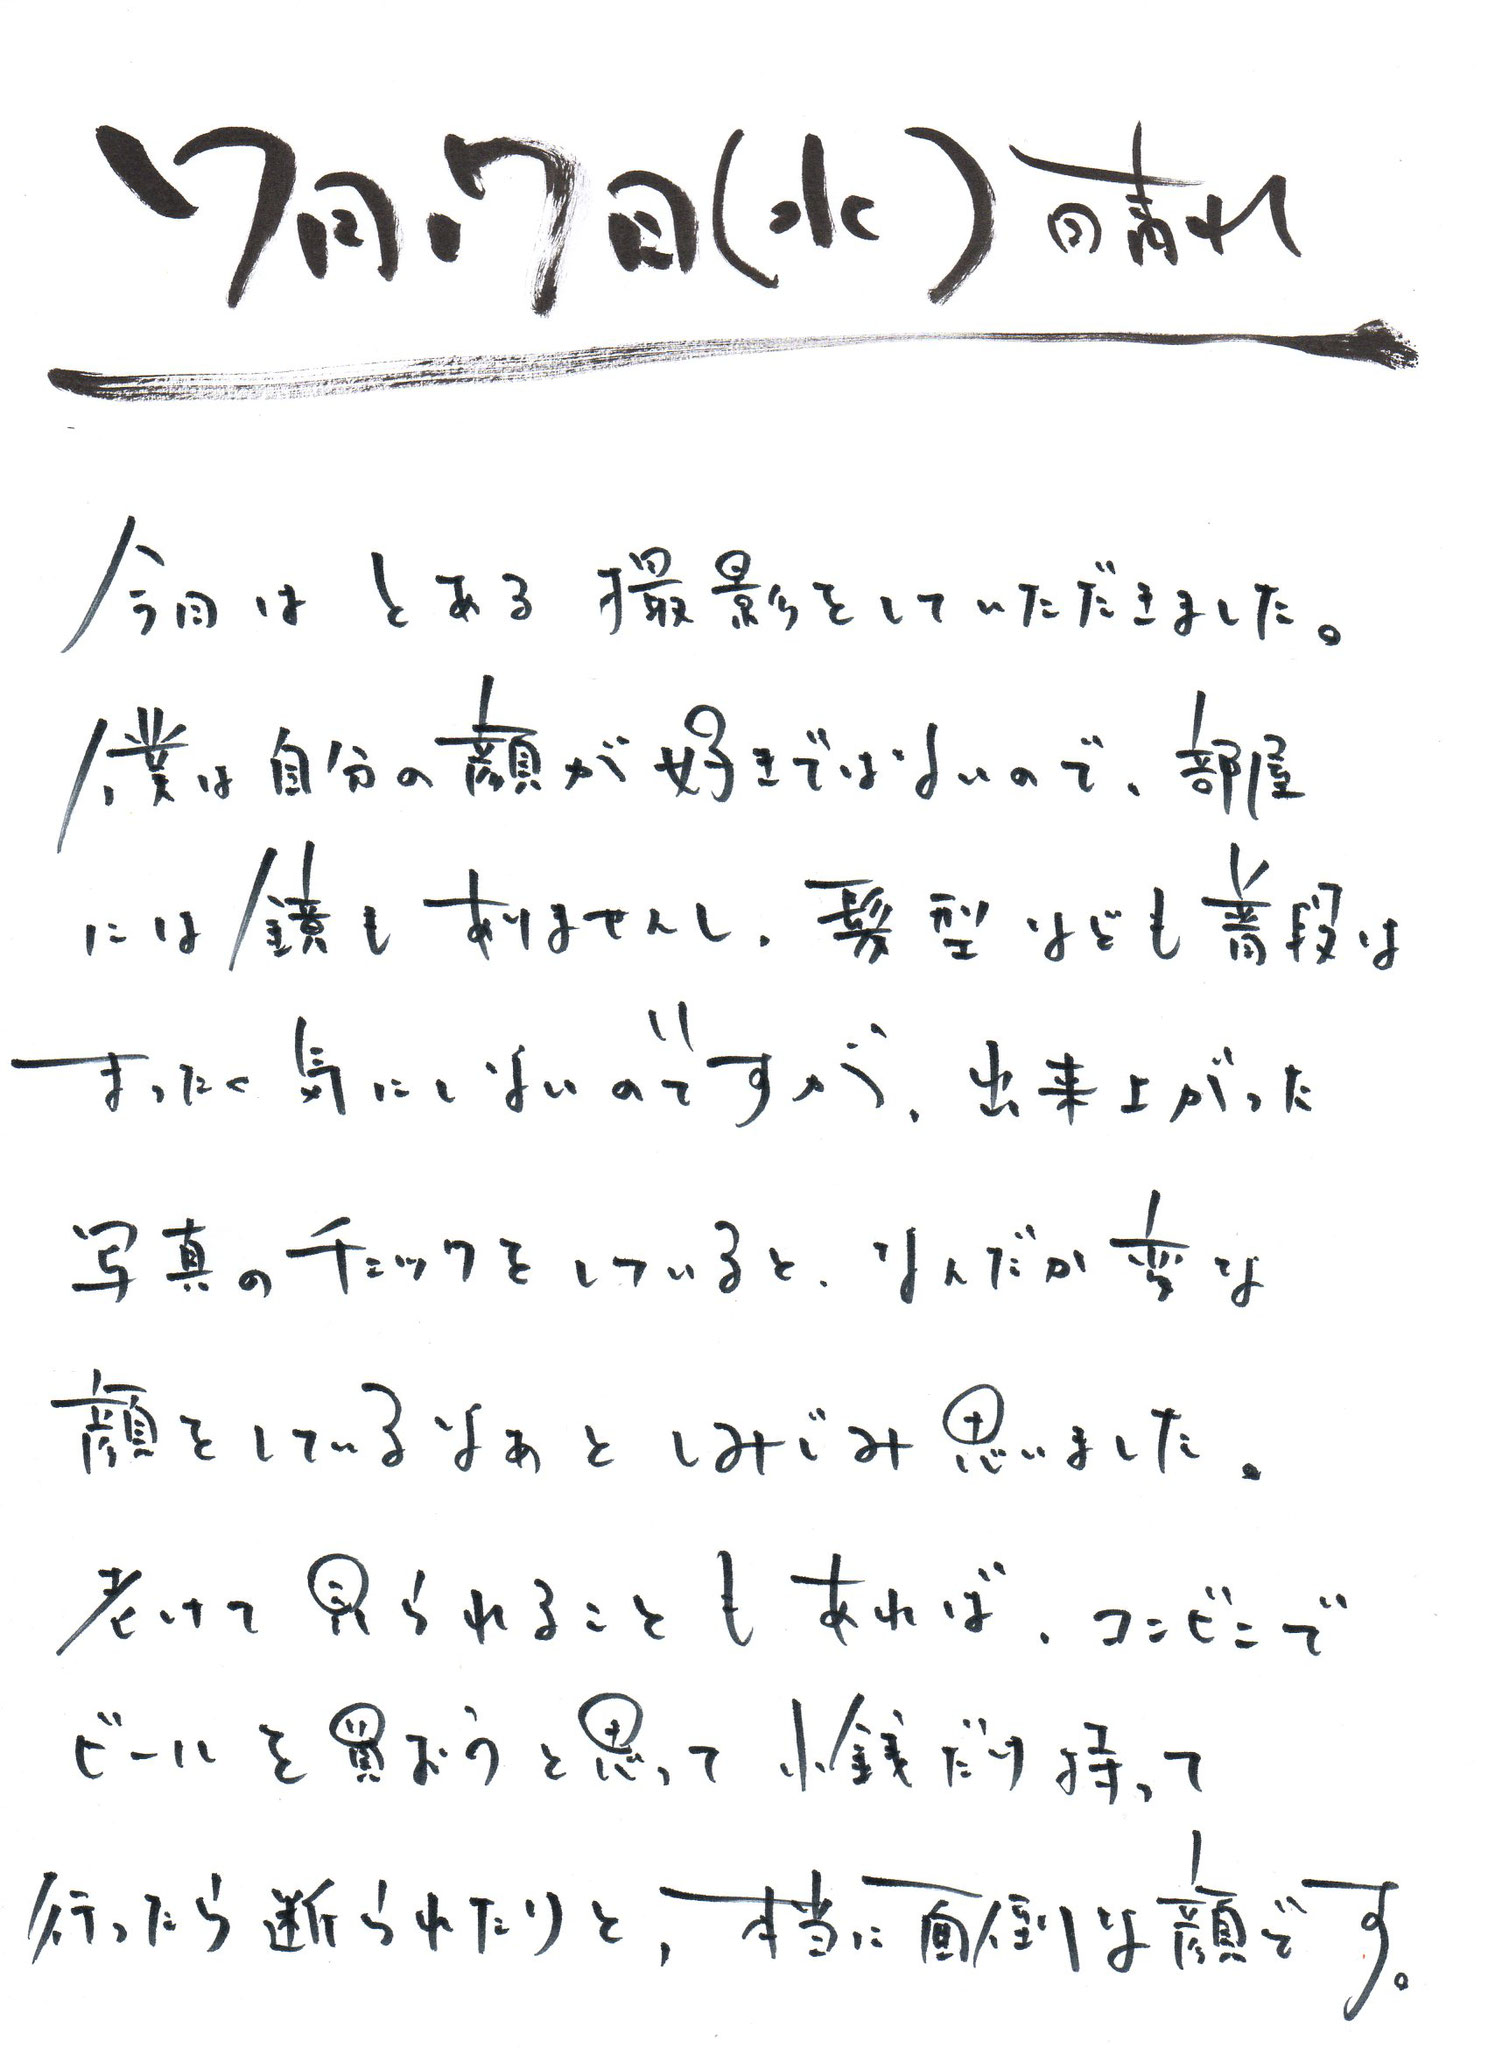 7月7日(水)晴れ
今日は とある 撮影をしていただきました。
僕は自分の顔が好きではないので、部屋
には鏡もありませんし、髪型なども普段は
まったく気にしないのですが、出来上がった
写真のチェックをしていると、なんだか変な
顔をしているなぁとしみじみ思いました。
老けて見られることもあれば、コンビニで
ビールを買おうと思って小銭だけ持って
行ったら断られたりと、本当に面倒な顔です。